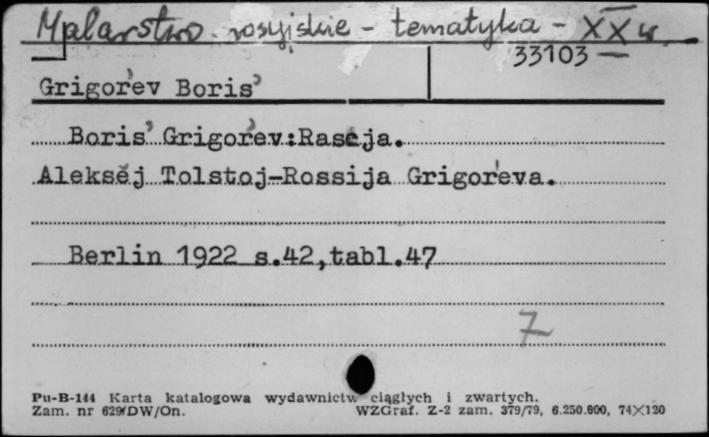 Malarstwo rosyjskie - tematyka - XX w.
33103
Grigor'ev Boris'
Boris' Grigor'ev:Raséja.
Aleksěj Tolstoj-Rossija Grigor'eva.
Berlin 1922 s.42,tabl.47
7
Pu-B-144 Karta katalogowa wydawnictw ciągłych i zwartych.
Zam. nr 629/DW/On. WZGraf. Z-2 zam. 379/79, 6.250.800, 74×120